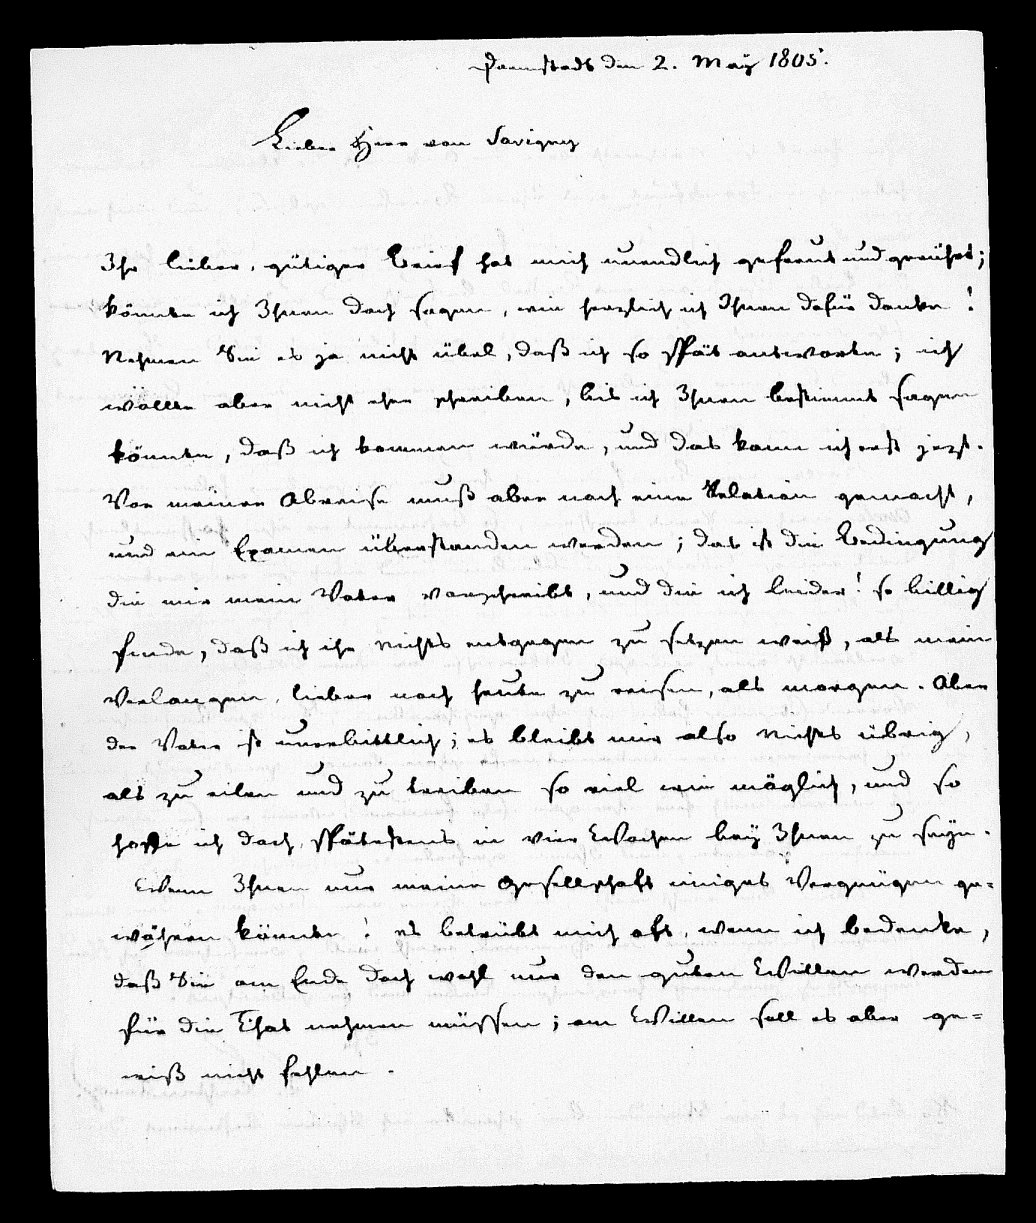 Darmstadt den 2. May 1805.
Lieber Herr von Savigny
Ihr lieber, gütiger Brief hat mich unendlich gefreut und gerührt;
könnte ich Ihnen doch sagen, wie herzlich ich Ihnen dafür danke!
Nehmen Sie es ja nicht übel, daß ich so spät antworte; ich
wollte aber nicht eher schreiben, bis ich Ihnen bestimmt sagen
könnte, daß ich kommen würde, und das kann ich erst jezt.
Vor meiner Abreise muß aber noch eine Relation gemacht,
und ein Examen überstanden werden; das ist die Bedingung
die mir mein Vater vorschreibt, und die ich leider! so billig
finde, daß ich ihr nichts entgegen zu setzen weiß, als mein
Verlangen, lieber noch heute zu reisen, als morgen. Aber
der Vater ist unerbittlich; es bleibt mir also nichts übrig,
als zu eilen und zu treiben so viel wie möglich, und so
hoffe ich doch, spätestens in vier Wochen bey Ihnen zu seyn.
Wenn Ihnen nur meine Gesellschaft einiges Vergnügen ge-
währen könnte! es betrübt mich oft, wenn ich bedenke,
daß Sie am Ende doch wohl nur den guten Willen werden
für die That nehmen müssen; am Willen soll es aber ge-
wiß nicht fehlen.